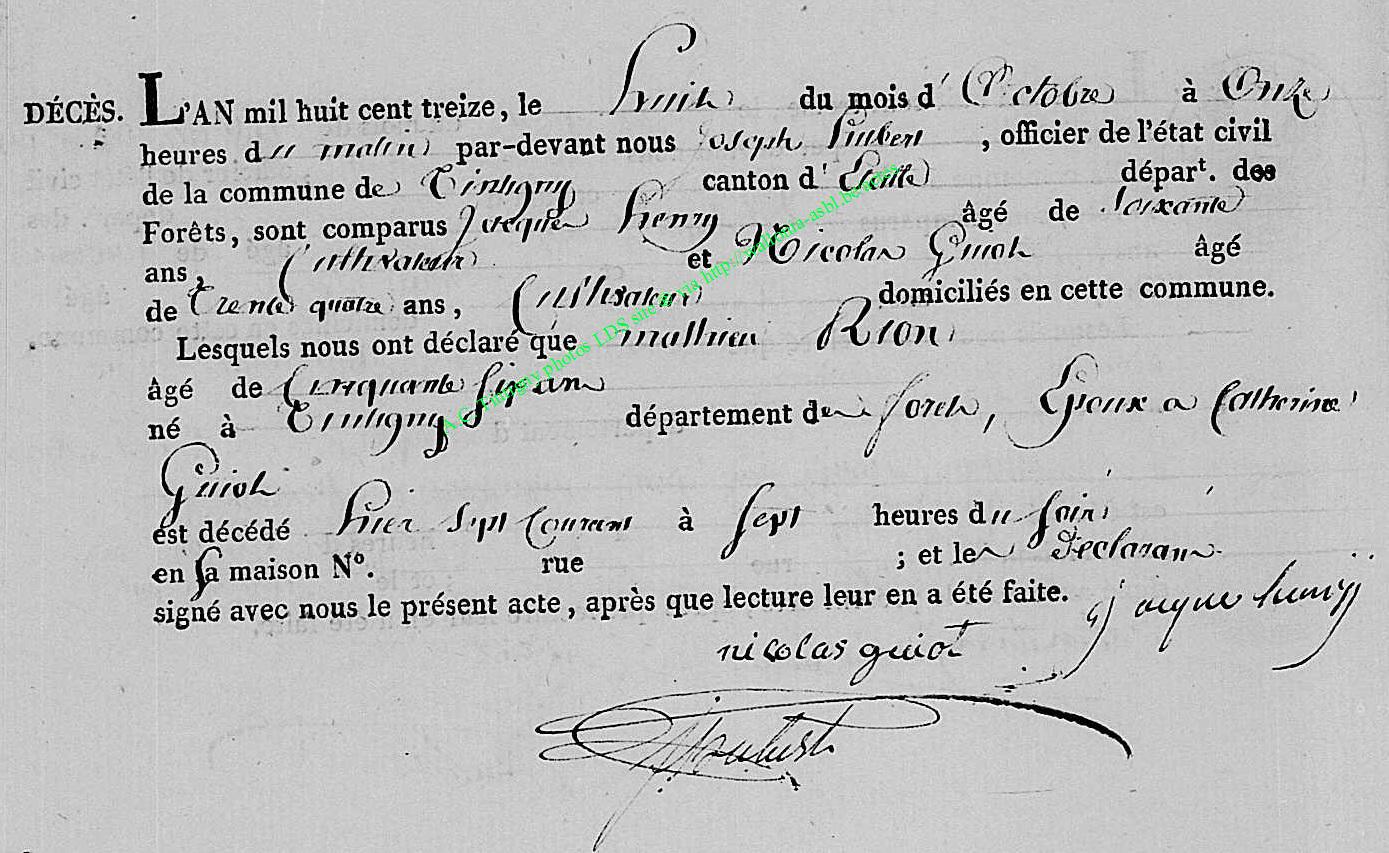 DÉCÈS. L'AN mil huit cent treize, le huit du mois d'Octobre à Onze
heures du matin par-devant nous Joseph , officier de l'état civil
de la commune de Tintigny canton d'Etalle départ. des
Forêts, sont comparus Jacques henry âgé de Soixante
ans, Cultivateur et Nicolas Guiot âgé
de Trente quatre ans, Cultivateur domiciliés en cette commune.
Lesquels nous ont déclaré que mathieu Rion
âgé de Cinquante Six ans
né à Tintigny département des forets, Epoux a Catherine
Guiot
est décédé hier Sept Courant à Sept heures du Soir
en Sa maison No. rue ; et les Declarans
signé avec nous le présent acte, après que lecture leur en a été faite.
jacque henry
nicolas guiot